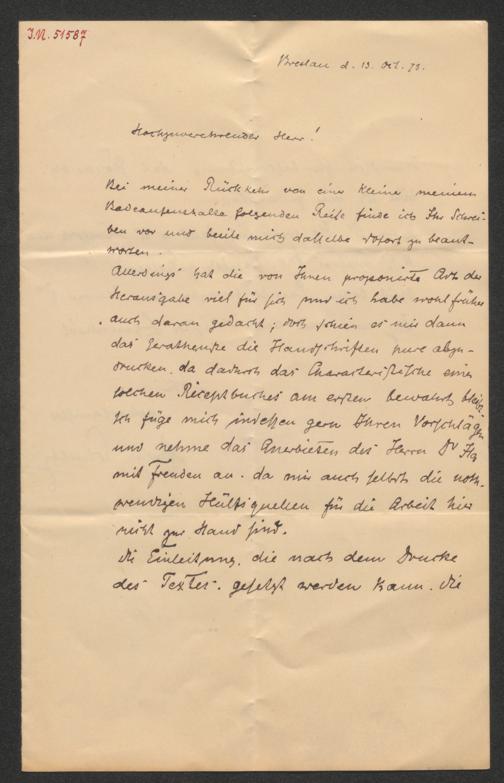 I.N. 51587
Breslau d. 13. Oct. 73.
Hochzuverehrender Herr!
Bei meiner Rückkehr von einer kleinen meinem
Badeaufenthalte folgenden Reise finde ich Ihr Schrei-
ben vor und beeile mich dasselbe sofort zu beant-
worten.
Allerdings hat die von Ihnen proponirte Art der
Herausgabe viel für sich und ich habe wohl früher
auch daran gedacht; doch schien es mir dann
das Gerathenste die Handschriften pure abzu-
drucken, da dadurch das Characteristische eines
solchen Receptbuches am ersten bewahrt bleibt.
Ich füge mich indessen gern Ihren Vorschlägen
und nehme das Anerbieten des Herrn Dr
mit Freuden an, da mir auch selbst die noth-
wendigen Hülfsquellen für die Arbeit hier
nicht zur Hand sind.
Die Einleitung, die nach dem Drucke
des Textes gesetzt werden kann, die